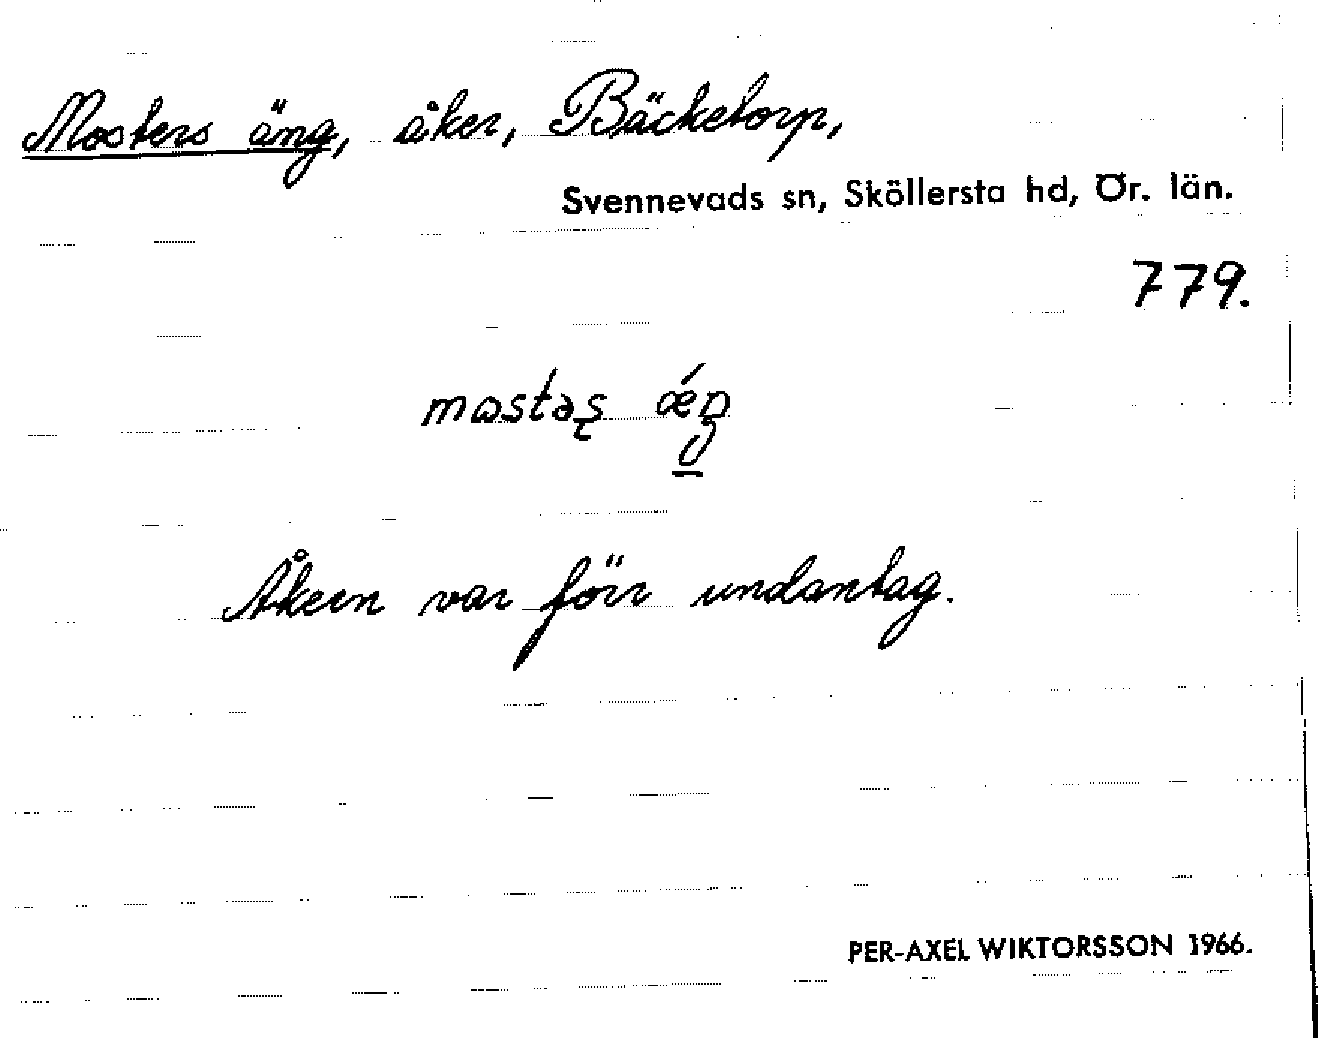 Mosters äng, åker, Bäcketorp,
Svennevads sn, Sköllersta hd, Ör. län.
779.
Åkern var förr undantag.
PER-AXEL WIKTORSSON 1966.